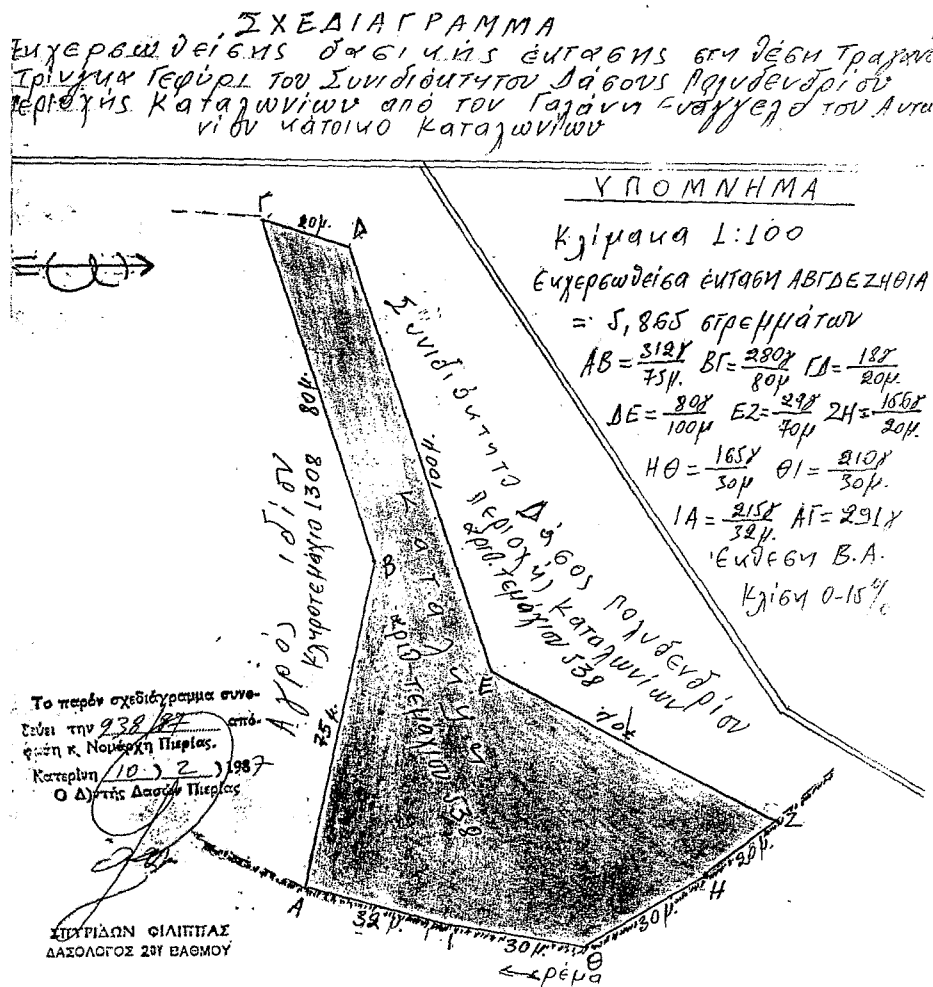 ΣΧΕΔΙΑΓΡΑΜΜΑ
Εκχερσωθείσης δασικής έκτασης στη θέση Τραγάνα
Τρίνγκα Γεφύρι του Συνιδιόκτητου Δάσους Πολυδενδρίου
περιοχής Καταλωνίων από τον Γαλάνη Ευάγγελο του Αντω
νίου κάτοικο Καταλωνίων
ΥΠΟΜΝΗΜΑ
Κλίμακα 1:100
Εκχερσωθείσα έκταση ΑΒΓΔΕΖΗΘΙΑ
= 5,865 στρεμμάτων
ΑΒ = 312γ/75μ. ΒΓ = 280γ/80μ ΓΔ = 18γ/20μ.
ΔΕ = 80γ/100μ ΕΖ = 29γ/70μ ΖΗ = 166γ/20μ.
ΗΘ = 165γ/30μ ΘΙ = 210γ/30μ.
ΙΑ = 215γ/32μ. ΑΓ = 291γ
Έκθεση Β.Α.
Κλίση 0-15%
Γ
20μ.
Δ
80μ.
100μ.
Αγρός ιδίου
Κληροτεμάχιο 1308
Συνιδιόκτητο Δάσος Πολυδενδρίου
περιοχής Καταλωνίων
αριθ. τεμαχίου 538
Β
Κατάληψη
αριθ. τεμαχίου 538
Ε
75μ.
70μ.
Ζ
20μ.
Η
30μ.
Θ
30μ.
Ι
32μ.
Α
ρέμα
Το παρόν σχεδιάγραμμα συνο-
δεύει την 938/87 από-
φαση κ. Νομάρχη Πιερίας.
Κατερίνη 10 / 2 / 1987
Ο Δ/ντής Δασών Πιερίας
ΣΠΥΡΙΔΩΝ ΦΙΛΙΠΠΑΣ
ΔΑΣΟΛΟΓΟΣ 2ΟΥ ΒΑΘΜΟΥ